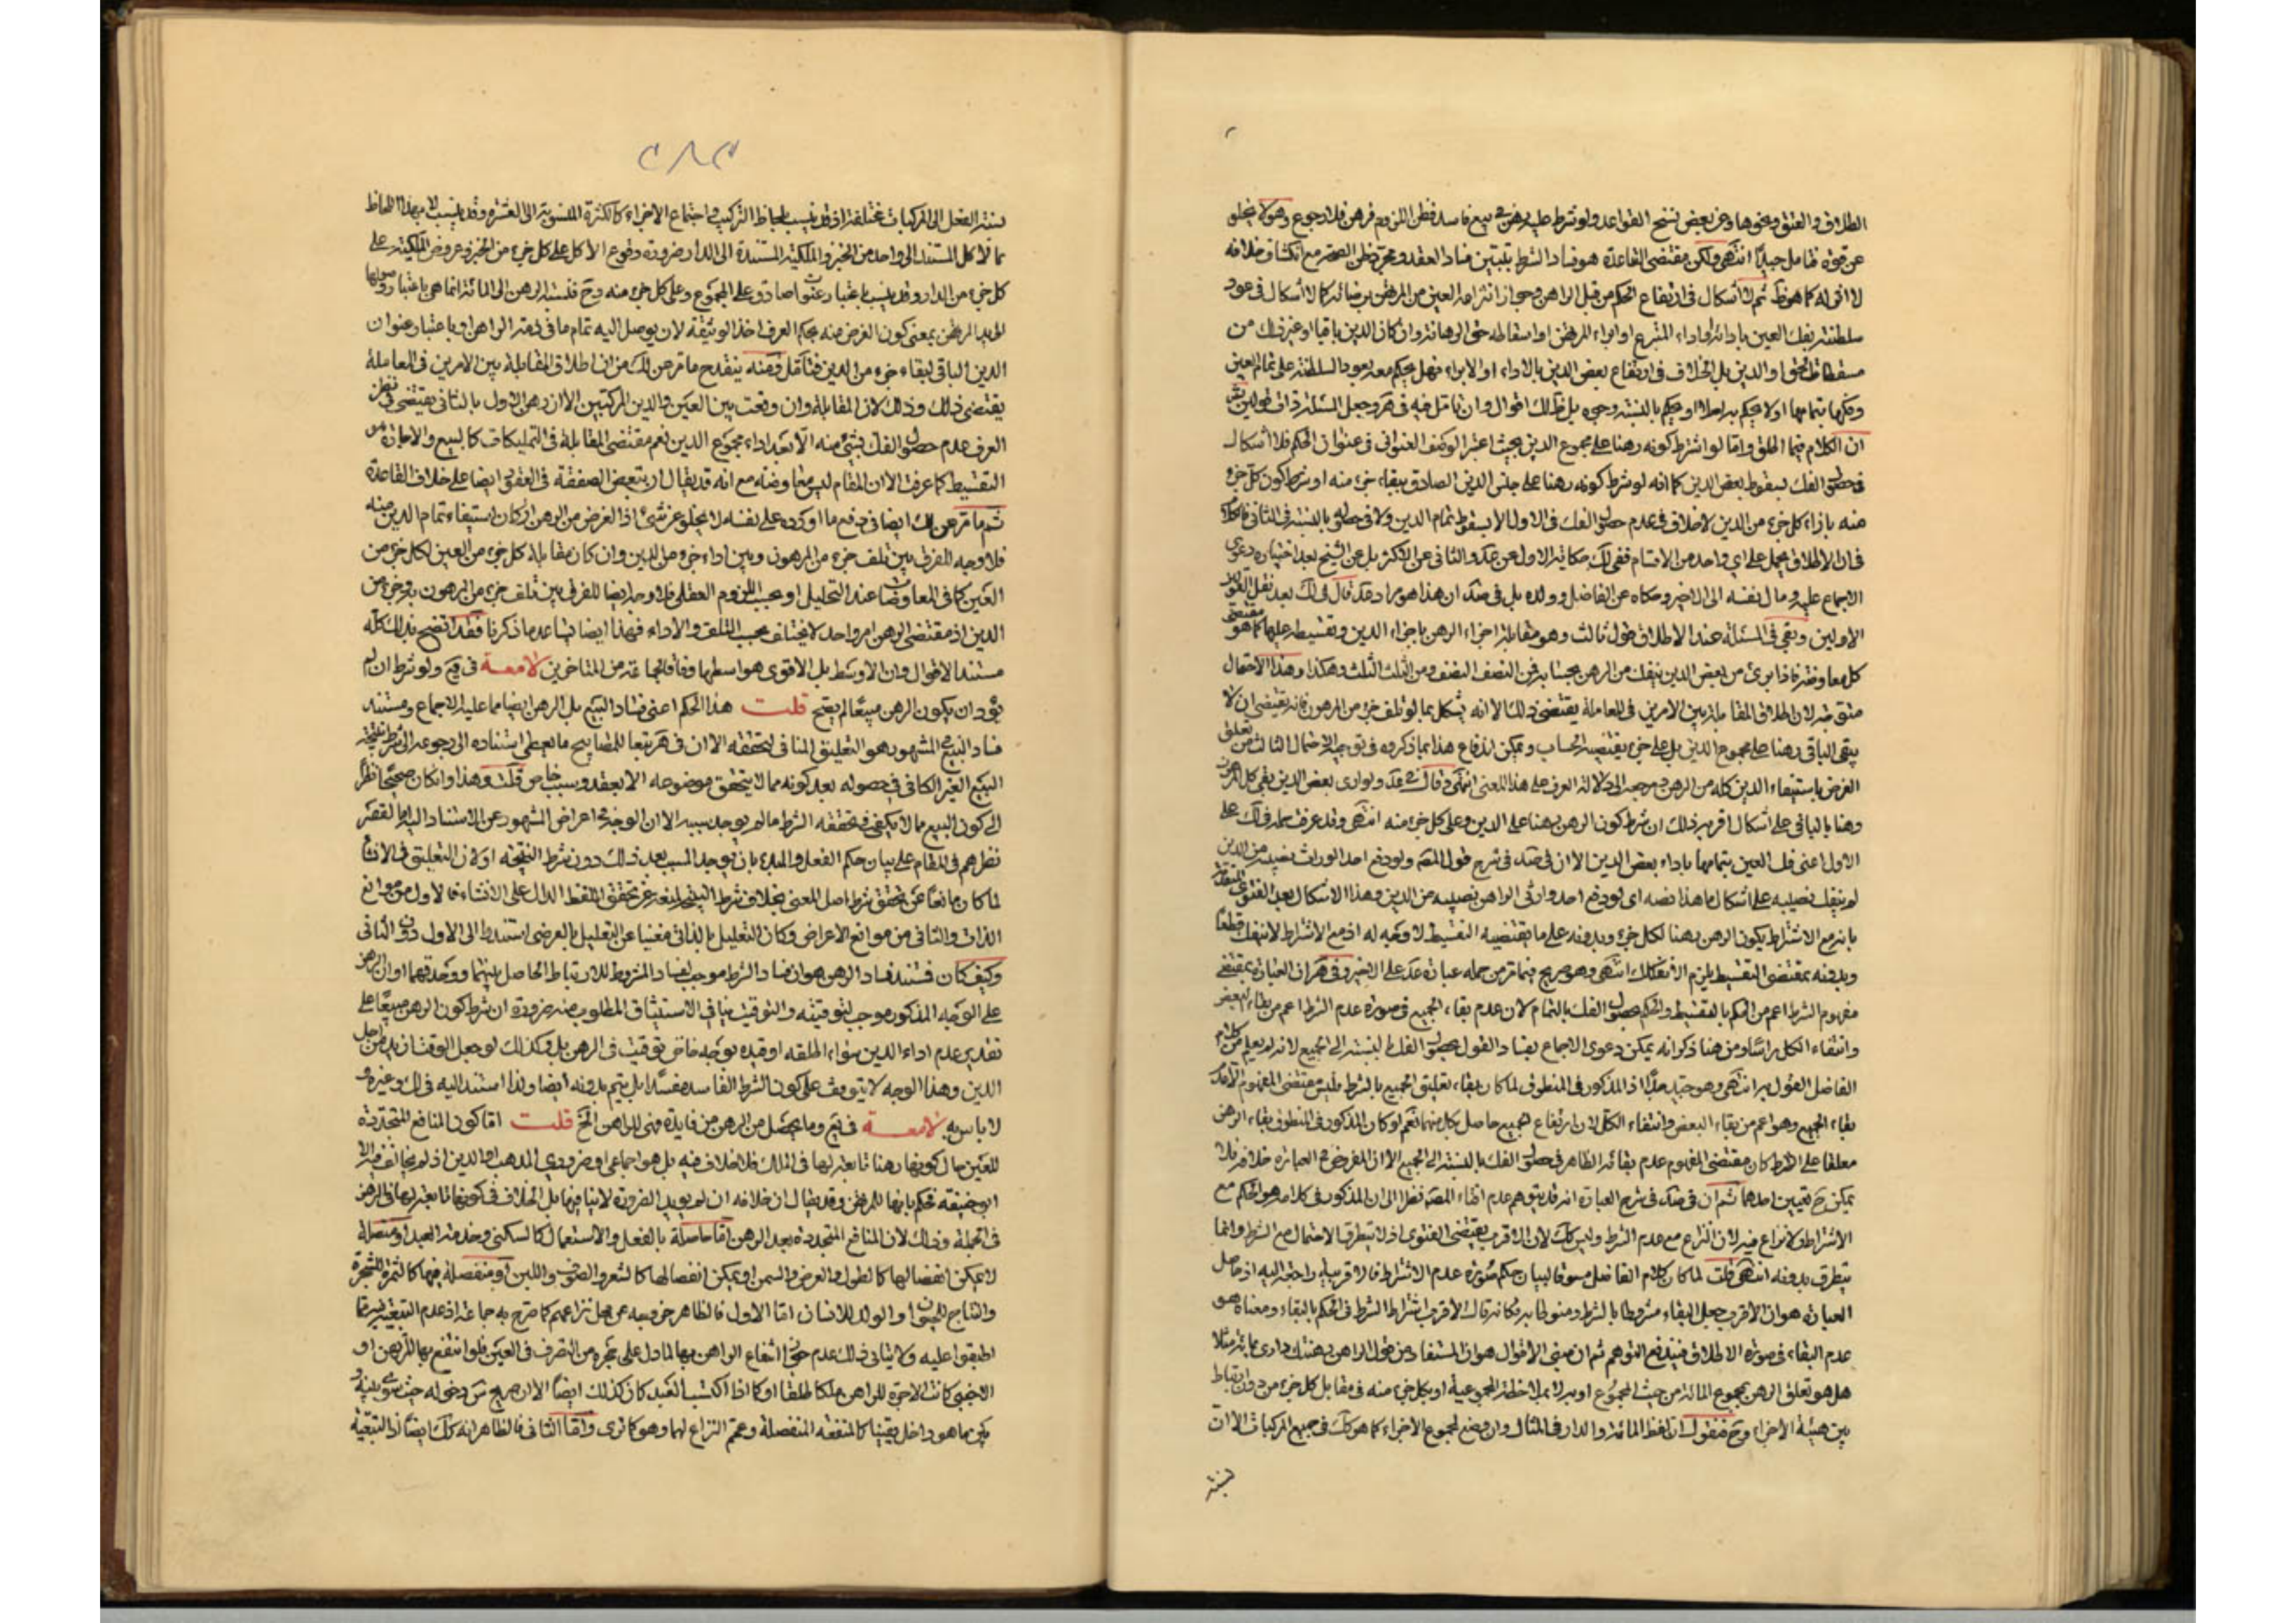 الطلاق والعتق ونحوها وعن بعض نسخ القواعد ولو شرط عليه رهن في بيع فاسد فظن اللزوم فرهن فله الرجوع وهو لا يخلو
عن قوة فتامل جيدا انتهى ولكن مقتضى القاعدة هو فساد الشرط بتبين فساد العقد ومجرد ظن الصحة مع انكشاف خلافه
لا اثر له كما هو ظ ثم لا اشكال في ارتفاع الحكم من قبل الراهن وجواز انتزاعه العين من المرتهن برضائه كما لا اشكال في عود
سلطنته بفك العين بادائه او اداء المتبرع او ابراء المرتهن او اسقاطه حق الرهانة وان كان الدين باقيا او غير ذلك من
مسقطات الحق او الدين بل الخلاف في ارتفاع بعض الدين بالاداء او الابراء فهل يحكم معه بعود السلطنة على تمام العين
وفكها بتمامها او لا يحكم به اصلا او يحكم بالنسبة وجوه بل
ان الكلام فيما اطلق واما لو اشترط كونه رهنا على مجموع الدين بحيث اعتبر الوصف العنواني في عنوان الحكم فلا اشكال
في حصول الفك بسقوط بعض الدين كما انه لو شرط كونه رهنا على جنس الدين الصادق ببقاء جزء منه او شرط كون كل جزء
منه بازاء كل جزء من الدين لا خلاف في عدم حصول الفك في الاول الا بسقوط تمام الدين ولا في حصوله بالنسبة في الثاني
فان الاطلاق يحمل على اي واحد من الاقسام ففي لك حكاية الاول عن عد والثاني عن الاكثر بل عن الشيخ بعد اختياره دعوى
الاجماع عليه ومال نفسه الى الاخير وحكاه عن الفاضل وولده بل في ضد ان هذا هو مراد عد قال في لك بعد نقل القولين
الاولين وبقي في المسئلة عند الاطلاق قول ثالث وهو مقابلة اجزاء الرهن باجزاء الدين وتقسيطه عليها كما هو مقتضى
كل معاوضة فاذا برئ من بعض الدين ينفك من الرهن بحسابه فمن النصف النصف ومن الثلث الثلث وهكذا وهذا الاحتمال
متوجه لان اطلاق المقابلة بين الامرين في المعاملة يقتضي ذلك الا انه يشكل بما لو تلف جزء من المرهون فانه يقتضي ان لا
يبقى الباقي رهنا على مجموع الدين بل على جزء يقتضيه الحساب ويمكن اندفاع هذا بما ذكروه في توجيه الاحتمال الثالث من تعلق
الغرض باستيفاء الدين كله من الرهن ومرجعه الى دلالة العرف على هذا المعنى انتهى وقال في عد ولو ادى بعض الدين بقي كل المرهون
رهنا بالباقي على اشكال اقربه ذلك ان شرط كون الرهن رهنا على الدين وعلى كل جزء منه انتهى وقد عرفت حمله في لك على
الاول اعني فك العين بتمامها باداء بعض الدين الا ان في ضد في شرح قول المصه ولو دفع احد الوراث نصيبه من الدين
لم ينفك نصيبه على اشكال ما هذا نصه اي لو دفع احد وراثي الراهن نصيبه من الدين وهذا الاشكال بعد الفتوى المتقدمة
بانه مع الاشتراط يكون الرهن رهنا لكل جزء وبدونه على ما يقتضيه التقسيط لا وجه له اذ مع الاشتراط لا ينفك قطعا
وبدونه بمقتضى التقسيط يلزم الانفكاك انتهى وهو صريح فيما مر من حمله عبارة عد على الاخير وفي هر ان العبارة بمقتضى
مفهوم الشرط اعم من الحكم بالتقسيط والحكم بحصول الفك بالتمام لان عدم بقاء الجميع في صورة عدم الشرط اعم من بقاء البعض
وانتفاء الكل راسا ومن هنا ذكر انه يمكن دعوى الاجماع بفساد القول بحصول الفك بالنسبة الى الجميع لانه لم يعلم من كلام
الفاضل القول به انتهى وهو جيد جدا اذ المذكور في المنطوق لما كان بقاء تعليق الجميع بالشرط فليس مقتضى المفهوم الا عدم
بقاء الجميع وهو اعم من بقاء البعض وانتفاء الكل لان ارتفاع الجميع حاصل بكل منهما نعم لو كان المذكور في المنطوق بقاء الرهن
معلقا على الشرط كان مقتضى المفهوم عدم بقائه الظاهر في حصول الفك بالنسبة الى الجميع الا ان المفروض في العبارة خلافه فلا
يمكن ح تعيين احدهما ثم ان في ضد في شرح العبارة انه قد يتوهم عدم افتاء المصه نظرا الى ان المذكور في كلامه هو الحكم مع
الاشتراط ولا نزاع فيه لان النزاع مع عدم الشرط وليس كك لان الاقرب يقتضي الفتوى اذ لا يتطرق الاحتمال مع الشرط وانما
يتطرق بدونه انتهى قلت لما كان كلام الفاضل مسوقا لبيان حكم صورة عدم الاشتراط فالاقربية راجعة اليه اذ حاصل
العبارة هو ان الاقرب جعل البقاء مشروطا بالشرط ومنوطا به فكانه قال الاقرب اشتراط الشرط في الحكم بالبقاء ومعناه هو
عدم البقاء في صورة الاطلاق فيندفع التوهم ثم ان مبنى الاقوال هو ان المستفاد من قول الراهن رهنتك داري بمائة مثلا
هل هو تعلق الرهن بمجموع المائة من حيث المجموع او به لا بملاحظة المجموعية او بكل جزء منه في مقابل كل جزء من دون ارتباط
بين هيئة الاجزاء وح فنقول ان لفظ المائة والدار في المثال وان وضع لمجموع الاجزاء كما هو كك في جميع المركبات الا ان
نسبته
٢٨٣
نسبة الفعل الى المركبات مختلفة اذ قد ينسب بلحاظ التركيب واجتماع الاجزاء كالكثرة المنسوبة الى العشرة وقد ينسب لا بهذا اللحاظ
كالاكل المستند الى واحد من الخبز والملكية المستندة الى الدار ضرورة وقوع الاكل على كل جزء من الخبز وعروض الملكية على
كل جزء من الدار وقد ينسب باعتبار عنوان صادق على المجموع وعلى كل جزء منه وح فنسبة الرهن الى المائة انما هي باعتبار وصولها
الى يد المرتهن بمعنى كون الغرض منه بحكم العرف اخذ الوثيقة لان يوصل اليه تمام ما في ذمة الراهن او باعتبار عنوان
الدين الباقي لبقاء جزء من الدين فتأمل ومنه ينقدح ما مر عن لك من ان اطلاق المقابلة بين الامرين في المعاملة
يقتضي ذلك وذلك لان المقابلة وان وقعت بين العين والدين المركبين الا ان رهن الاول بالثاني يقتضي في نظر
العرف عدم حصول الفك بشيء منه الا بعد اداء مجموع الدين نعم مقتضى المقابلة في التمليكات كالبيع والاجارة هو
التقسيط كما عرفت الا ان المقام ليس معاوضة مع انه قد يقال ان تبعض الصفقة في العقود ايضا على خلاف القاعدة
ثم ما مر عن لك ايضا في دفع ما اورده على نفسه لا يخلو عن شيء اذ الغرض من الرهن ان كان استيفاء تمام الدين منه
فلا وجه للفرق بين تلف جزء من المرهون وبين اداء جزء من الدين وان كان مقابلة كل جزء من العين لكل جزء من
العين كما في المعاوضات عند التحليل او بحسب اللزوم العقلي فلا وجه ايضا للفرق بين تلف جزء من المرهون وجزء من
الدين اذ مقتضى الرهن امر واحد لا يختلف بحسب التلف والاداء فهذا ايضا يساعد ما ذكرنا فقد اتضح بذلك كله
مستند الاقوال وان الاوسط بل الاقوى هو اوسطها وفاقا لجماعة من المتاخرين لامعة في يع ولو شرط ان لم
يؤد ان يكون الرهن مبيعا لم يصح قلت هذا الحكم اعني فساد البيع بل الرهن ايضا مما عليه الاجماع ومستند
فساد البيع المشهور هو التعليق المنافي لتحققه الا ان في هر تبعا للمصابيح ما يعطي استناده الى رجوعه الى شرط نتيجة
البيع الغير الكافي في حصوله بعد كونه مما لا يتحقق موضوعه الا بعقد وسبب خاص قلت وهذا وان كان صحيحا نظرا
الى كون البيع مما لا يكفي في تحققه الشرط ما لم يوجد سببه الا ان الوجه في اعراض المشهور عن الاستناد اليه اما لقصر
نظرهم في المقام على بيان حكم الفعل والمبدء بان يوجد المسبب بعد ذلك دون شرط النتيجة او لان التعليق في الانشاء
لما كان مانعا عن تحقق شرط اصل المعنى بخلاف شرط النتيجة لمنعه عن تحقق اللفظ الدال على الانشاء فالاول من موانع
الذات والثاني من موانع الاعراض وكان التعليل بالذاتي مغنيا عن التعليل بالعرضي استندوا الى الاول دون الثاني
وكيف كان فمستند فساد الرهن هو ان فساد الشرط موجب لفساد المشروط للارتباط الحاصل بينهما ووحدتهما او ان الرهن
على الوجه المذكور موجب لتوقيته والتوقيت ينافي الاستيثاق المطلوب منه ضرورة ان شرط كون الرهن مبيعا على
تقدير عدم اداء الدين سواء اطلقه او قيده بوجه خاص توقيت في الرهن بل وكذلك لو جعل الوقت ازيد من اجل
الدين وهذا الوجه لا يتوقف على كون الشرط الفاسد مفسدا بل يتم بدونه ايضا ولذا استند اليه في لك وغيره و
لا باس به لامعة في يع وما يحصل من الرهن من فايدة فهي للراهن الخ قلت اما كون المنافع المتجددة
للعين حال كونها رهنا تابعة لها في الملك فلا خلاف فيه بل هو اجماعي او ضروري المذهب او الدين اذ لم يخالف فيه الا
ابو حنيفة فحكم بانها للمرتهن وقد يقال ان خلافه ان لم يؤيد الضرورة لا ينافيها بل الخلاف في كونها تابعة لها في الرهن
في الجملة وذلك لان المنافع المتجددة بعد الرهن اما حاصلة بالفعل والاستعمال كالسكنى وخدمة العبد او متصلة
لا يمكن انفصالها كالطول والعرض والسمن او يمكن انفصالها كالشعر والصوف واللبن او منفصلة فيها كالثمرة للشجرة
والنتاج للحيوان او الولد للانسان اما الاول فالظاهر خروجه عن محل نزاعهم كما صرح به جماعة اذ عدم التبعية فيه مما
اطبقوا عليه ولا ينافي ذلك عدم جواز انتفاع الراهن بها لما دل على حجره من التصرف في العين فلو انتفع بها المرتهن او
الاجنبي كانت الاجرة للراهن ملكا طلقا او كما اذا اكتسب العبد كان كذلك ايضا الا ان صريح س دخوله حيث سوى بينه و
بين ما هو داخل يقينا كالمنفعة المنفصلة وعمم النزاع لهما وهو كما ترى واما الثاني فالظاهر انه كك ايضا اذ التبعية